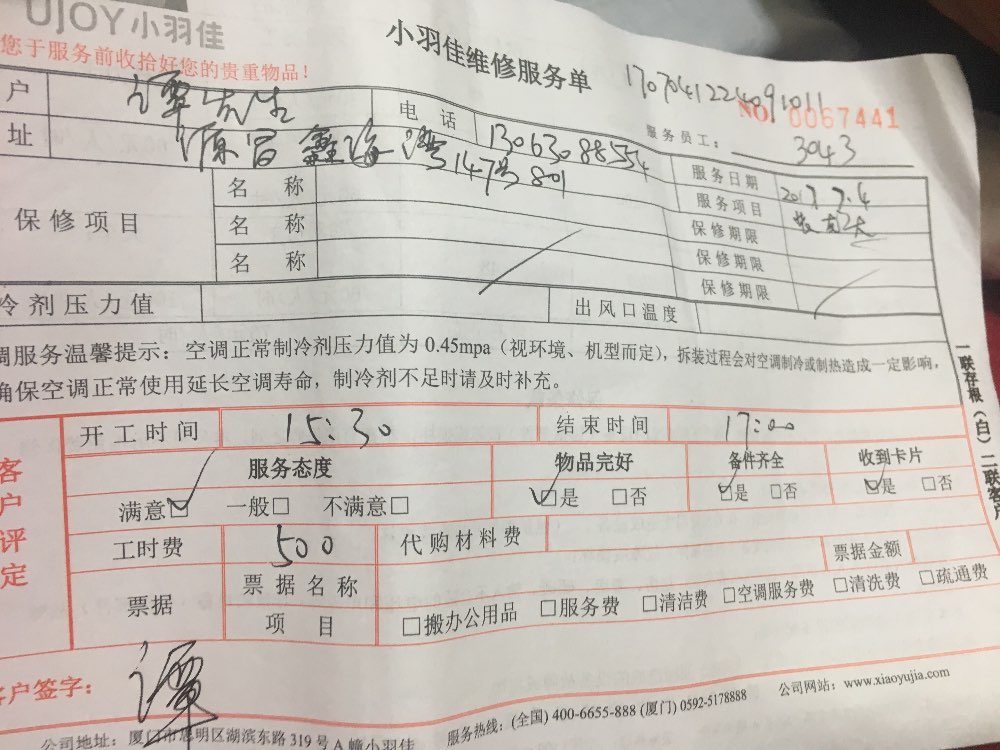 UJOY小羽佳
小羽佳维修服务单
您于服务前收拾好您的贵重物品！
1707041224091011
NO. 0067441
户 谭先生 电话 13063088554
服务员工： 3043
址 源昌鑫海湾147号801
服务日期 2017.7.4
保修项目
名称 服务项目
名称 保修期限
名称 保修期限
保修期限
冷剂压力值 出风口温度
调服务温馨提示：空调正常制冷剂压力值为 0.45mpa（视环境、机型而定），拆装过程会对空调制冷或制热造成一定影响，
确保空调正常使用延长空调寿命，制冷剂不足时请及时补充。
一联存根（白）二联客户
客户评定
开工时间 15:30 结束时间 17:00
服务态度 物品完好 备件齐全 收到卡片
满意☑ 一般□ 不满意□ ☑是 □否 ☑是 □否 ☑是 □否
工时费 500 代购材料费 票据金额
票据 票据名称
项目 □搬办公用品 □服务费 □清洁费 □空调服务费 □清洗费 □疏通费
客户签字： 谭
公司地址：厦门市思明区湖滨东路 319 号 A 幢小羽佳 服务热线：(全国) 400-6655-888 (厦门) 0592-5178888 公司网站：www.xiaoyujia.com